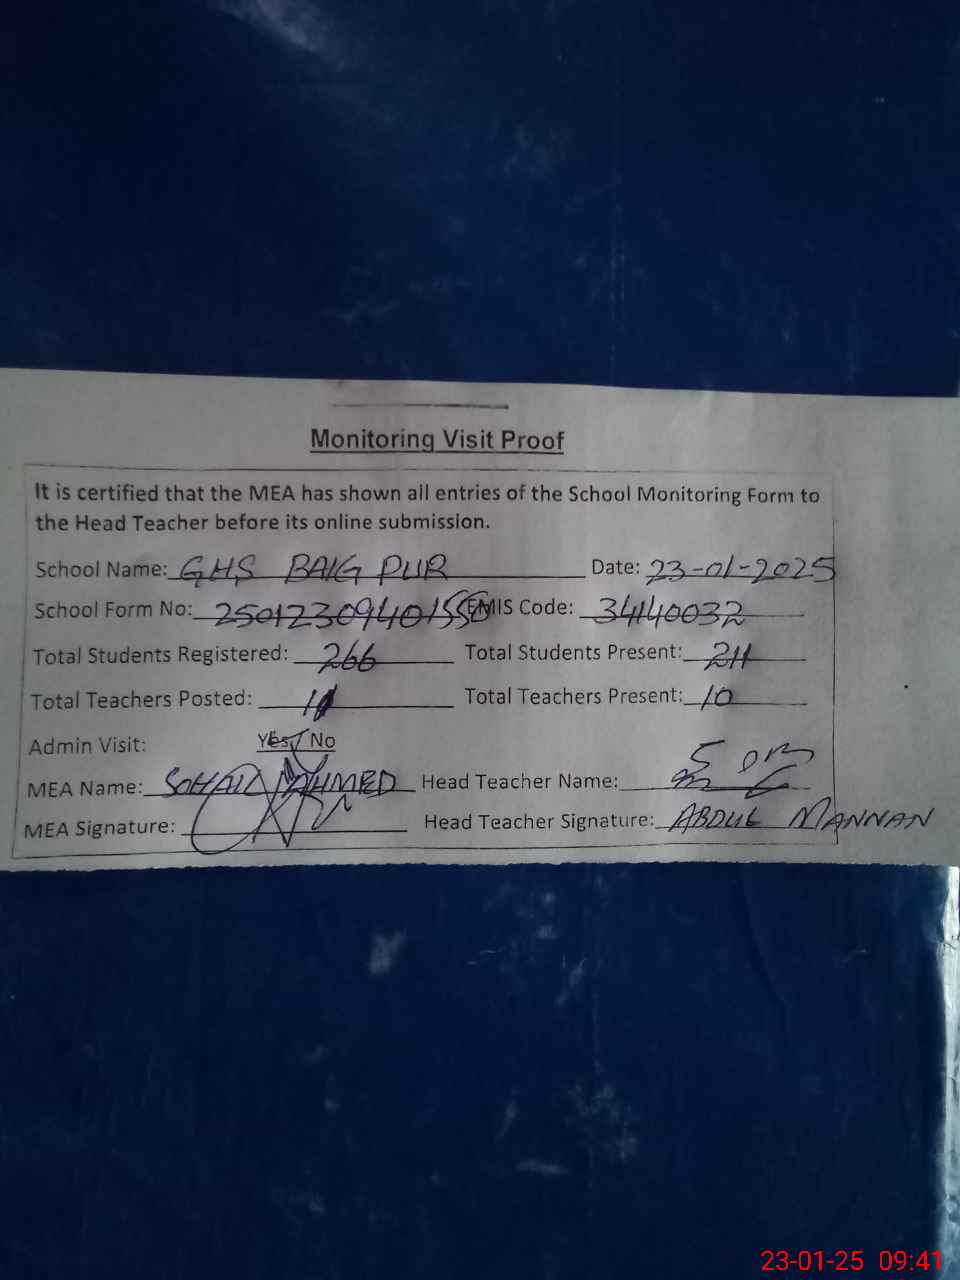 Monitoring Visit Proof
It is certified that the MEA has shown all entries of the School Monitoring Form to
the Head Teacher before its online submission.
School Name: GHS BAIG PUR Date: 23-01-2025
School Form No: 25012309401550 EMIS Code: 34140032
Total Students Registered: 266 Total Students Present: 211
Total Teachers Posted: 11 Total Teachers Present: 10
Admin Visit: Yes/No
MEA Name: SOHAIL AHMED Head Teacher Name:
MEA Signature: Head Teacher Signature: ABDUL MANNAN
23-01-25 09:41